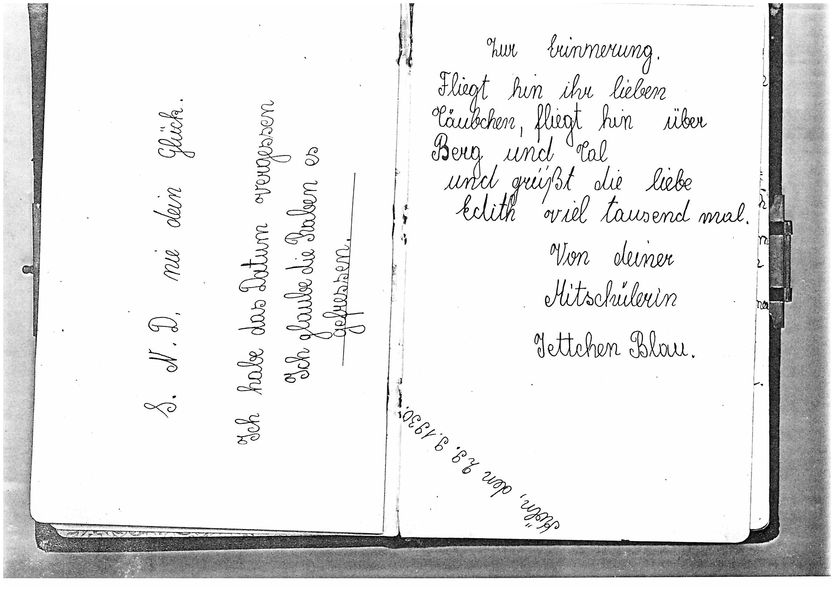 S. N. D. nie dein Glück.
Ich habe das Datum vergessen
Ich glaube die Raben es
gefressen.
Zur Erinnerung.
Fliegt hin ihr lieben
Täubchen, fliegt hin über
Berg und Tal
und grüßt die liebe
Edith viel tausend mal.
Von deiner
Mitschülerin
Jettchen Blau.
Köln, den 29. 9. 1930.